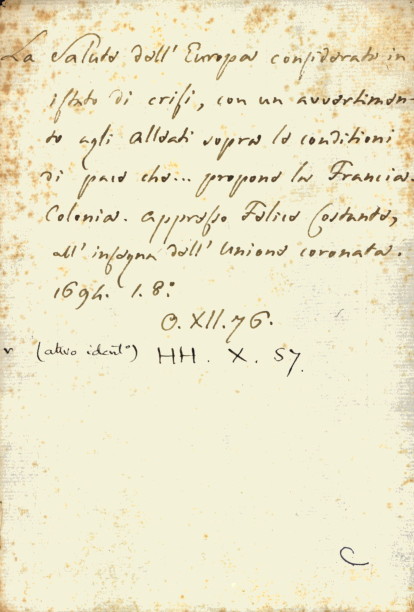 La Salute dell' Europa considerata in
istato di crisi, con un avvertimen-
to agli Alleati sopra le conditioni
di pace che... propone la Francia.
Colonia. Appresso Felice Costante,
all' insegna dell' Unione coronata.
1694. 1. 8.°
O. XII. 76.
v (altro ident°) HH. X. 57.
C